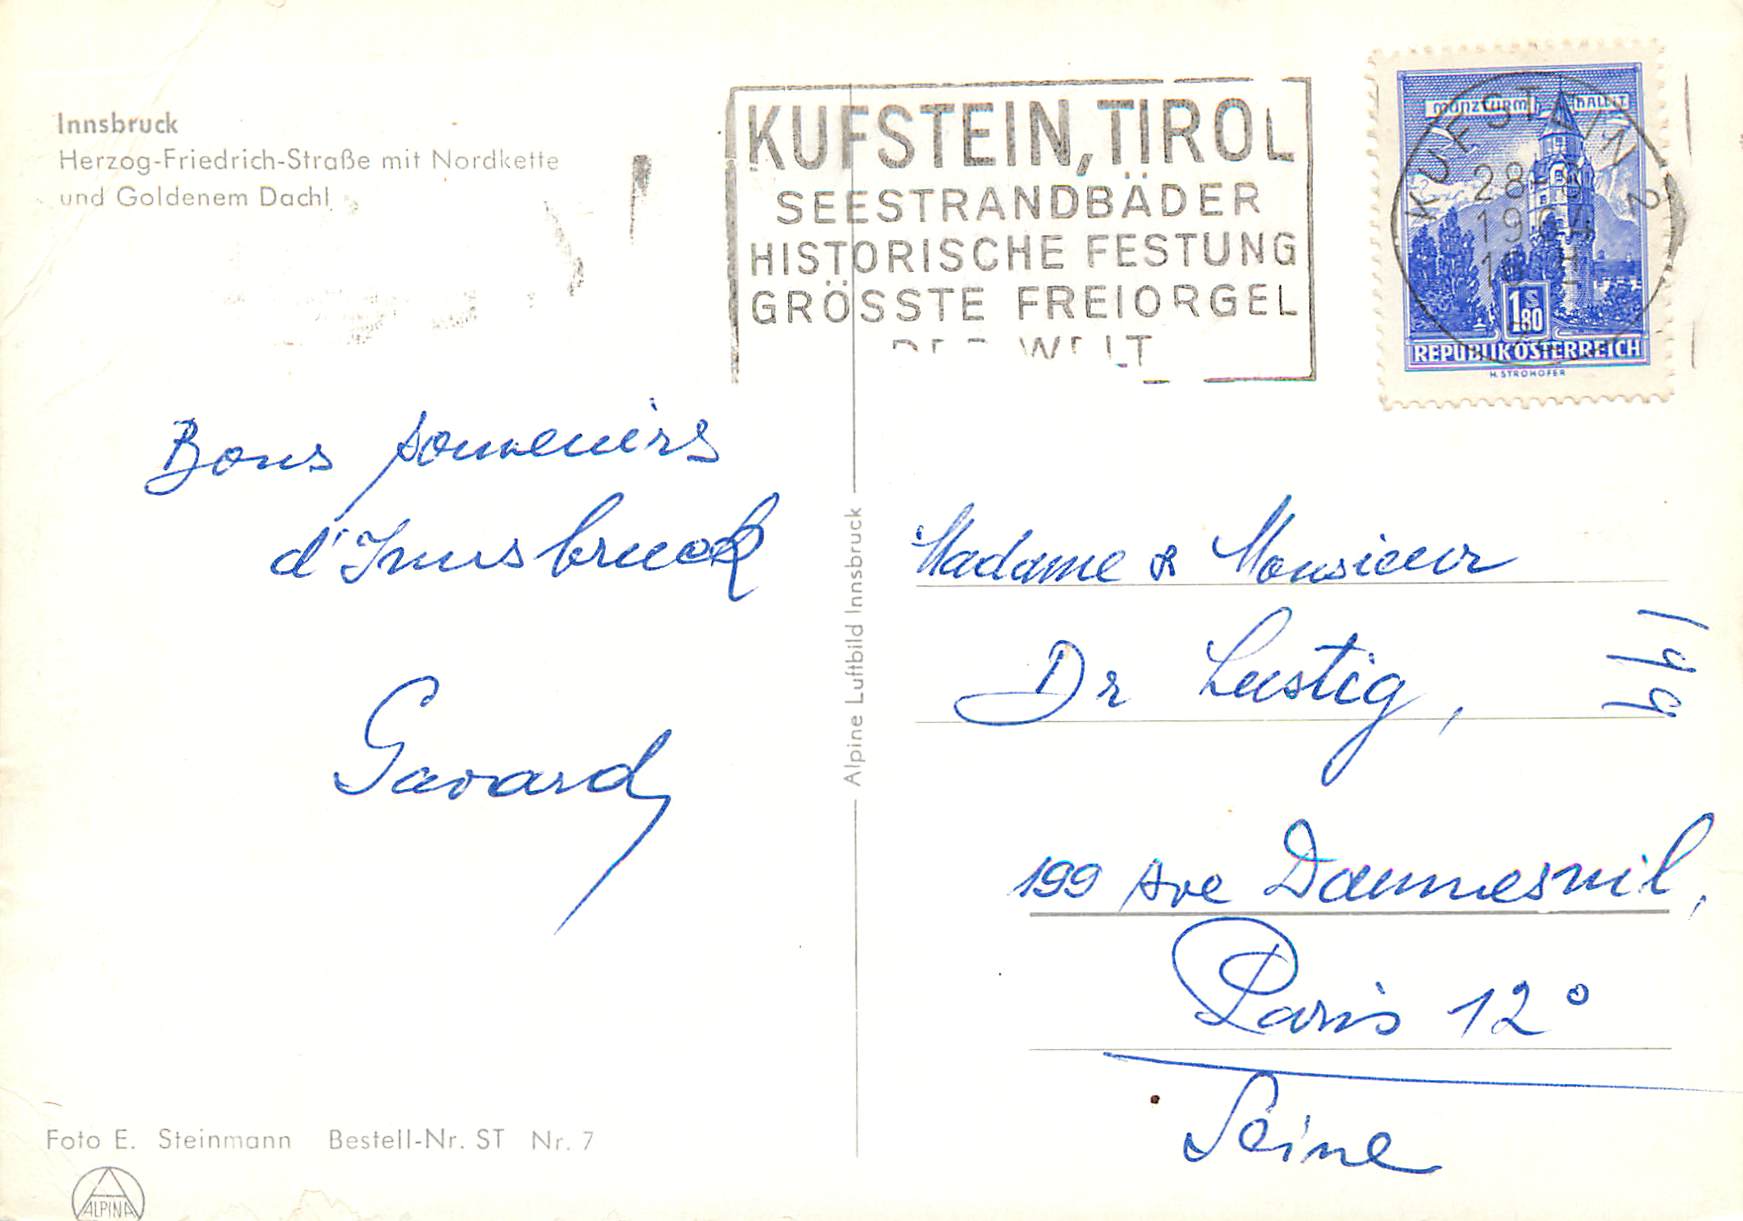 Innsbruck
Herzog-Friedrich-Straße mit Nordkette
und Goldenem Dachl
KUFSTEIN, TIROL
SEESTRANDBÄDER
HISTORISCHE FESTUNG
GRÖSSTE FREIORGEL
DER WELT
MÜNZTURM HALL I.T.
KUFSTEIN 2
28
1964
1 S 80
REPUBLIK ÖSTERREICH
H. STROHOFER
Bons souvenirs
d'Innsbruck
Gavard
Alpine Luftbild Innsbruck
Madame & Monsieur
Dr Lustig,
199
199 Ave Daumesnil,
Paris 12°
Seine
Foto E. Steinmann Bestell-Nr. ST Nr. 7
ALPINA